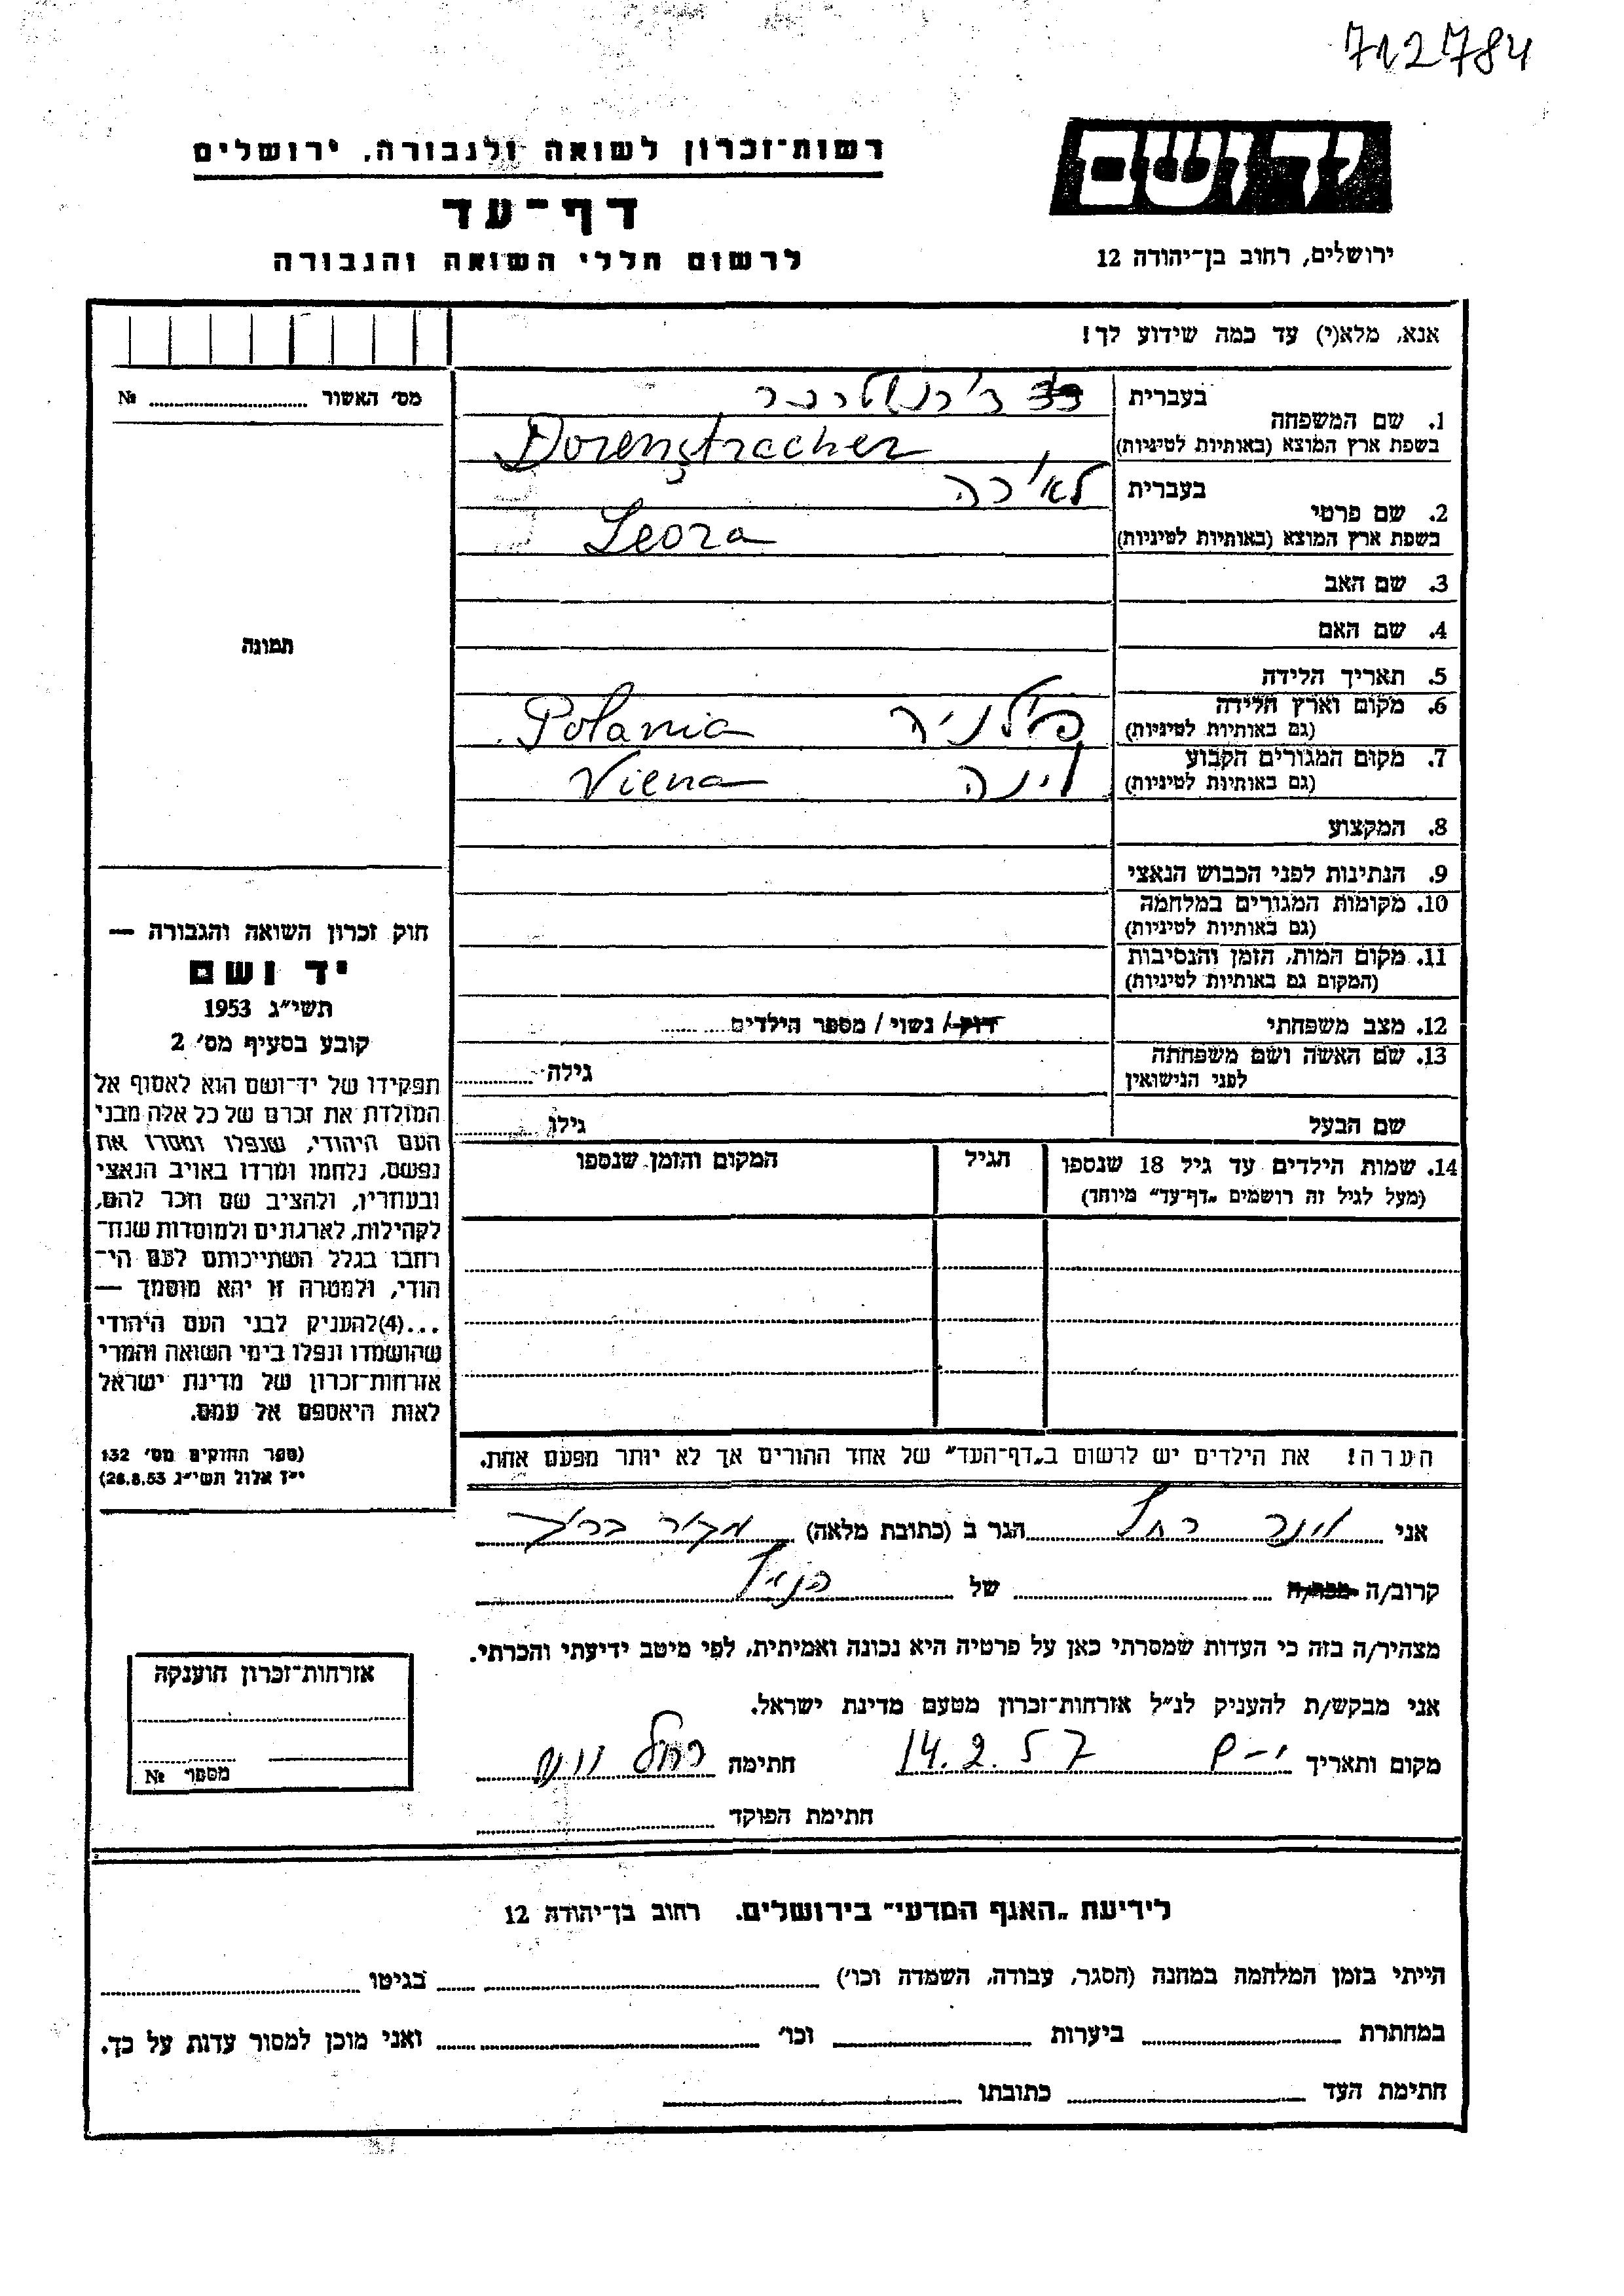 712784
יד ושם
רשות־זכרון לשואה ולגבורה, ירושלים
דף־עד
לרשום חללי השואה והגבורה
ירושלים, רחוב בן־יהודה 12
אנא, מלא(י) עד כמה שידוע לך!
מס׳ האשור № 
תמונה
1. שם המשפחה
בעברית
בשפת ארץ המוצא (באותיות לטיניות) Dorenstracher
2. שם פרטי
בעברית לאורה
בשפת ארץ המוצא (באותיות לטיניות) Leora
3. שם האב
4. שם האם
5. תאריך הלידה
6. מקום וארץ הלידה פולניה Polania
(גם באותיות לטיניות)
7. מקום המגורים הקבוע וינה Viena
(גם באותיות לטיניות)
8. המקצוע
9. הנתינות לפני הכבוש הנאצי
10. מקומות המגורים במלחמה
(גם באותיות לטיניות)
11. מקום המות, הזמן והנסיבות
(המקום גם באותיות לטיניות)
12. מצב משפחתי רווק/ נשוי/ מספר הילדים
13. שם האשה ושם משפחתה גילה
לפני הנישואין
שם הבעל גילו
14. שמות הילדים עד גיל 18 שנספו הגיל המקום והזמן שנספו
(מעל לגיל זה רושמים „דף־עד” מיוחד)
חוק זכרון השואה והגבורה —
יד ושם
תשי״ג 1953
קובע בסעיף מס׳ 2
תפקידו של יד־ושם הוא לאסוף אל
המולדת את זכרם של כל אלה מבני
העם היהודי, שנפלו ומסרו את
נפשם, נלחמו ומרדו באויב הנאצי
ובעוזריו, ולהציב שם וזכר להם,
לקהילות, לארגונים ולמוסדות שנח־
רבו בגלל השתייכותם לעם הי־
הודי, ולמטרה זו יהא מוסמך —
...(4)להעניק לבני העם היהודי
שהושמדו ונפלו בימי השואה והמרי
אזרחות־זכרון של מדינת ישראל
לאות היאספם אל עמם.
(ספר החוקים מס׳ 132
י״ז אלול תשי״ג 28.8.53)
הערה! את הילדים יש לרשום ב„דף־העד” של אחד ההורים אך לא יותר מפעם אחת.
אני וינר רחל הגר ב (כתובת מלאה) מקור ברוך
קרוב/ה מכר/ה של הנ״ל
מצהיר/ה בזה כי העדות שמסרתי כאן על פרטיה היא נכונה ואמיתית, לפי מיטב ידיעתי והכרתי.
אני מבקש/ת להעניק לנ״ל אזרחות־זכרון מטעם מדינת ישראל.
מקום ותאריך י-ם 14.2.57 חתימה רחל
חתימת הפוקד
אזרחות־זכרון הוענקה
מספר №
לידיעת „האגף המדעי” בירושלים. רחוב בן־יהודה 12
הייתי בזמן המלחמה במחנה (הסגר, עבודה, השמדה וכו׳) בגיטו
במחתרת ביערות וכו׳ ואני מוכן למסור עדות על כך.
חתימת העד כתובתו